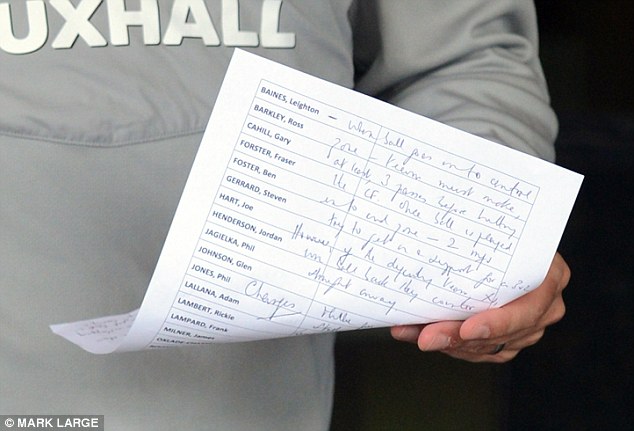 UXHALL
BAINES, Leighton – When ball goes into centre
BARKLEY, Ross zone – team must make
CAHILL, Gary at least 3 passes before hitting
FORSTER, Fraser the CF. Once ball is played
FOSTER, Ben into end zone – 2
GERRARD, Steven try to get in a support for a
HART, Joe However if the defending team
HENDERSON, Jordan win ball back they counter
JAGIELKA, Phil straight away
JOHNSON, Glen
JONES, Phil
LALLANA, Adam Changes
LAMBERT, Rickie
LAMPARD, Frank
MILNER, James
© MARK LARGE